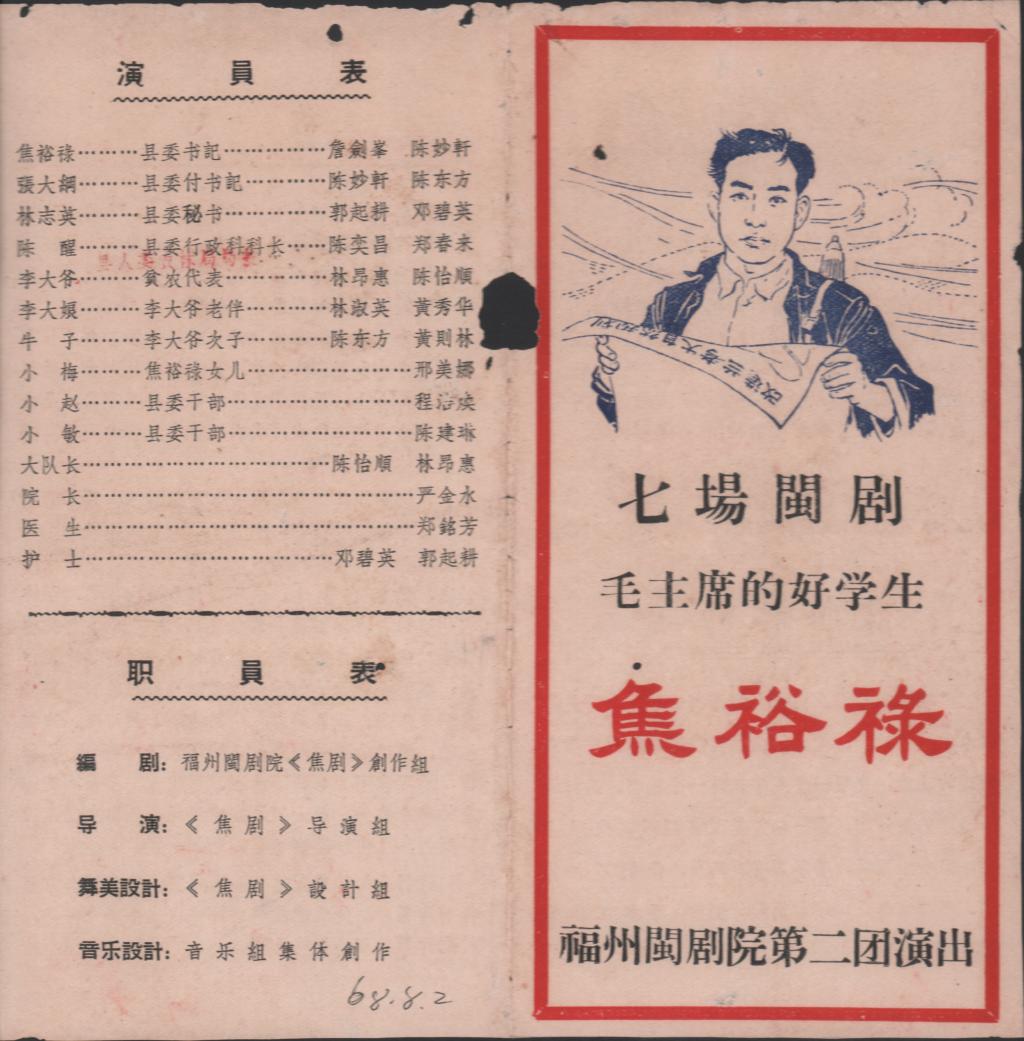 演員表
焦裕祿………县委书記…………詹劍峯 陈妙軒
張大綱………县委付书記………陈妙軒 陈东方
林志英………县委秘书…………郭起耕 邓碧英
陈醒………县委行政科科长…陈奕昌 郑春来
李大爷………贫农代表…………林昂惠 陈怡順
李大娘………李大爷老伴………林淑英 黄秀华
牛子………李大爷次子………陈东方 黄則林
小梅………焦裕祿女儿………………邢美娜
小赵………县委干部…………………程
小敏………县委干部…………………陈建琳
大队长………………………陈怡順 林昂惠
院长…………………………………严金水
医生…………………………………郑銘芳
护士…………………………邓碧英 郭起耕
职員表
編剧：福州閩剧院《焦剧》創作組
导演：《焦剧》导演組
舞美設計：《焦剧》設計組
音乐設計：音乐組集体創作
68.8.2
改造兰考大自然规划
七場閩剧
毛主席的好学生
焦裕祿
福州閩剧院第二团演出